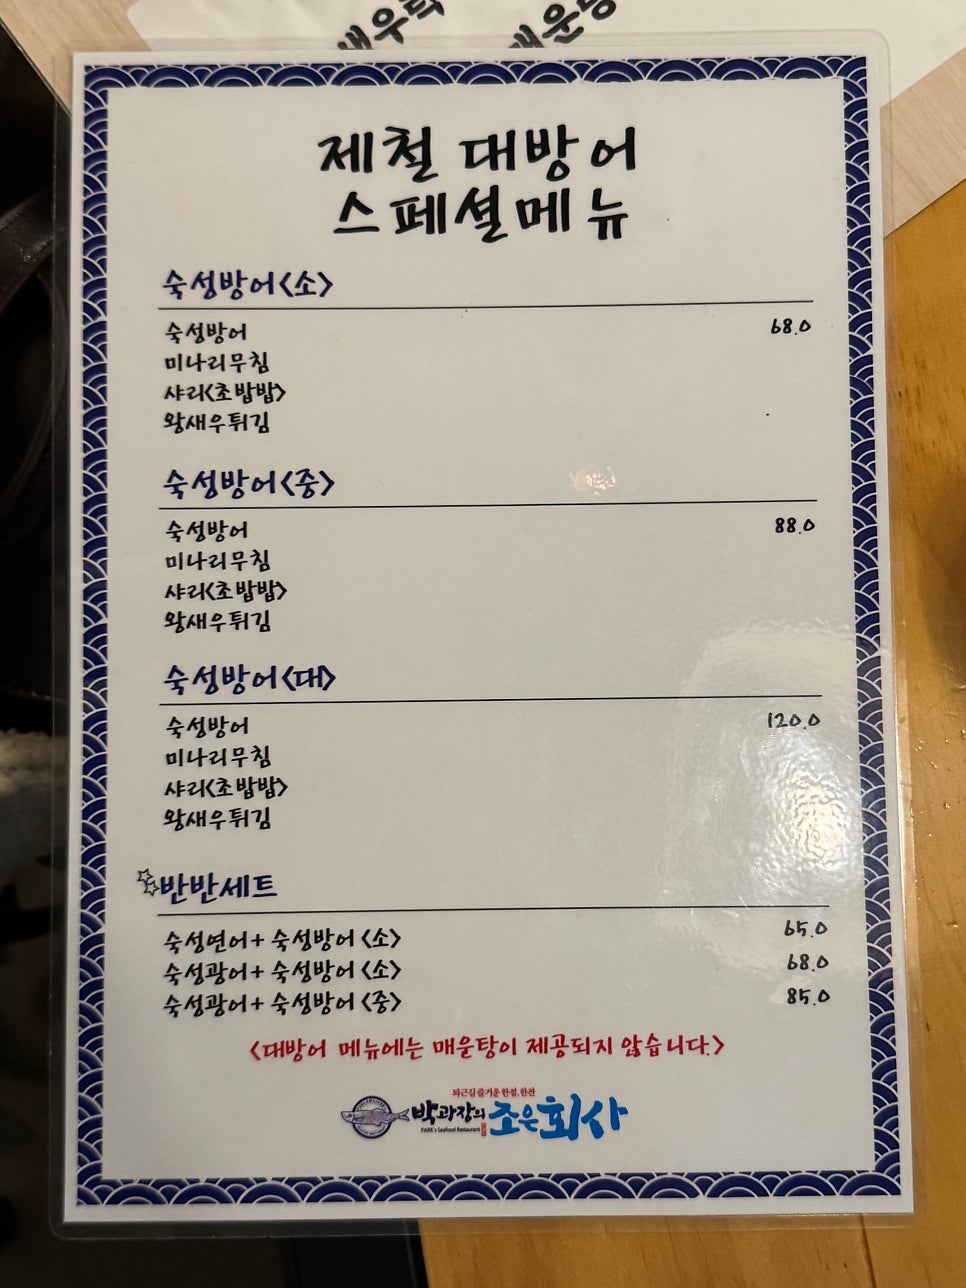 새우튀
매운탕
제철 대방어
스페셜메뉴
숙성방어<소>
숙성방어 68.0
미나리무침
샤리<초밥밥>
왕새우튀김
숙성방어<중>
숙성방어 88.0
미나리무침
샤리<초밥밥>
왕새우튀김
숙성방어<대>
숙성방어 120.0
미나리무침
샤리<초밥밥>
왕새우튀김
반반세트
숙성연어+ 숙성방어 <소> 65.0
숙성광어+ 숙성방어 <소> 68.0
숙성광어+ 숙성방어 <중> 85.0
<대방어 메뉴에는 매운탕이 제공되지 않습니다.>
퇴근길 즐거운 한점, 한잔
박과장의 조은회사
PARK's Seafood Restaurant